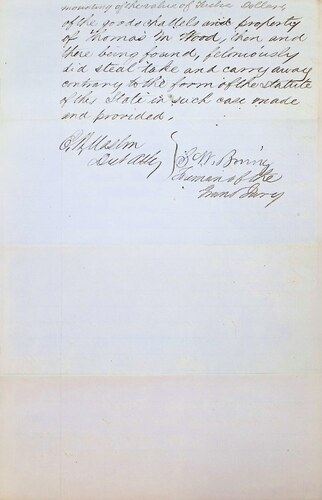 mounting of the value of sixteen Dollars,
of the goods chattels and property
of Thomas M Wood, then and
there being found, feloniously
did steal take and carry away
contrary to the form of the Statute
of this State in such case made
and provided.
Dist Atty
Foreman of the
Grand Jury